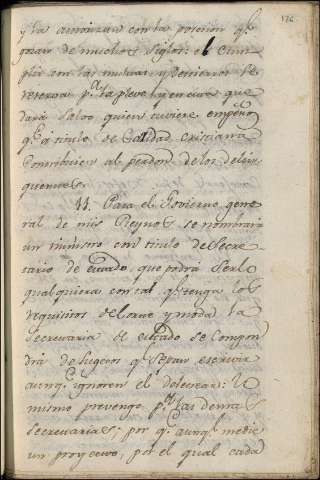 126
y la autorizan con la posesion q.e
gozan de muchos siglos: el cum-
plir con las mismas, y
p.a la pleve la
dará salvo quien tuviere empeño
q.e a titulo de Caridad cristiana
contribuien al perdon de los delin-
quentes.
11. Para el Govierno gene-
ral de mis Reynos se nombrará
un ministro con titulo de Secre-
tario de estado, que podrá serlo
qualquiera con tal q.e tenga los
requisitos del arte y moda: la
Secretaria de estado se compon-
drá de sugetos q.e sepan escrivir
aunq.e ignoren el deletrear: lo
mismo prevengo p.a las demas
Secretarias: por q.e aunq.e medie
un proyecto, por el qual cada